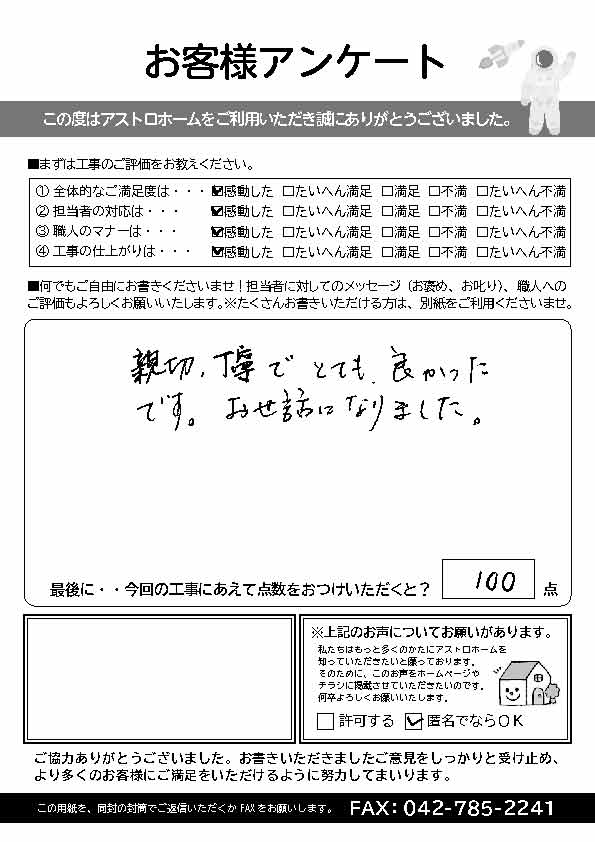 お客様アンケート
この度はアストロホームをご利用いただき誠にありがとうございました。
■まずは工事のご評価をお教えください。
① 全体的なご満足度は・・・ ☑感動した □たいへん満足 □満足 □不満 □たいへん不満
② 担当者の対応は・・・ ☑感動した □たいへん満足 □満足 □不満 □たいへん不満
③ 職人のマナーは・・・ ☑感動した □たいへん満足 □満足 □不満 □たいへん不満
④ 工事の仕上がりは・・・ ☑感動した □たいへん満足 □満足 □不満 □たいへん不満
■何でもご自由にお書きくださいませ！担当者に対してのメッセージ（お褒め、お叱り）、職人への
ご評価もよろしくお願いいたします。※たくさんお書きいただける方は、別紙をご利用くださいませ。
親切、丁寧で とても 良かった
です。お世話になりました。
最後に・・今回の工事にあえて点数をおつけいただくと？ 100 点
※上記のお声についてお願いがあります。
私たちはもっと多くのかたにアストロホームを
知っていただきたいと願っております。
そのために、このお声をホームページや
チラシに掲載させていただきたいのです。
何卒よろしくお願いいたします。
□ 許可する ☑ 匿名でならＯＫ
ご協力ありがとうございました。お書きいただきましたご意見をしっかりと受け止め、
より多くのお客様にご満足をいただけるように努力してまいります。
この用紙を、同封の封筒でご返信いただくか FAX をお願いします。 FAX：042-785-2241